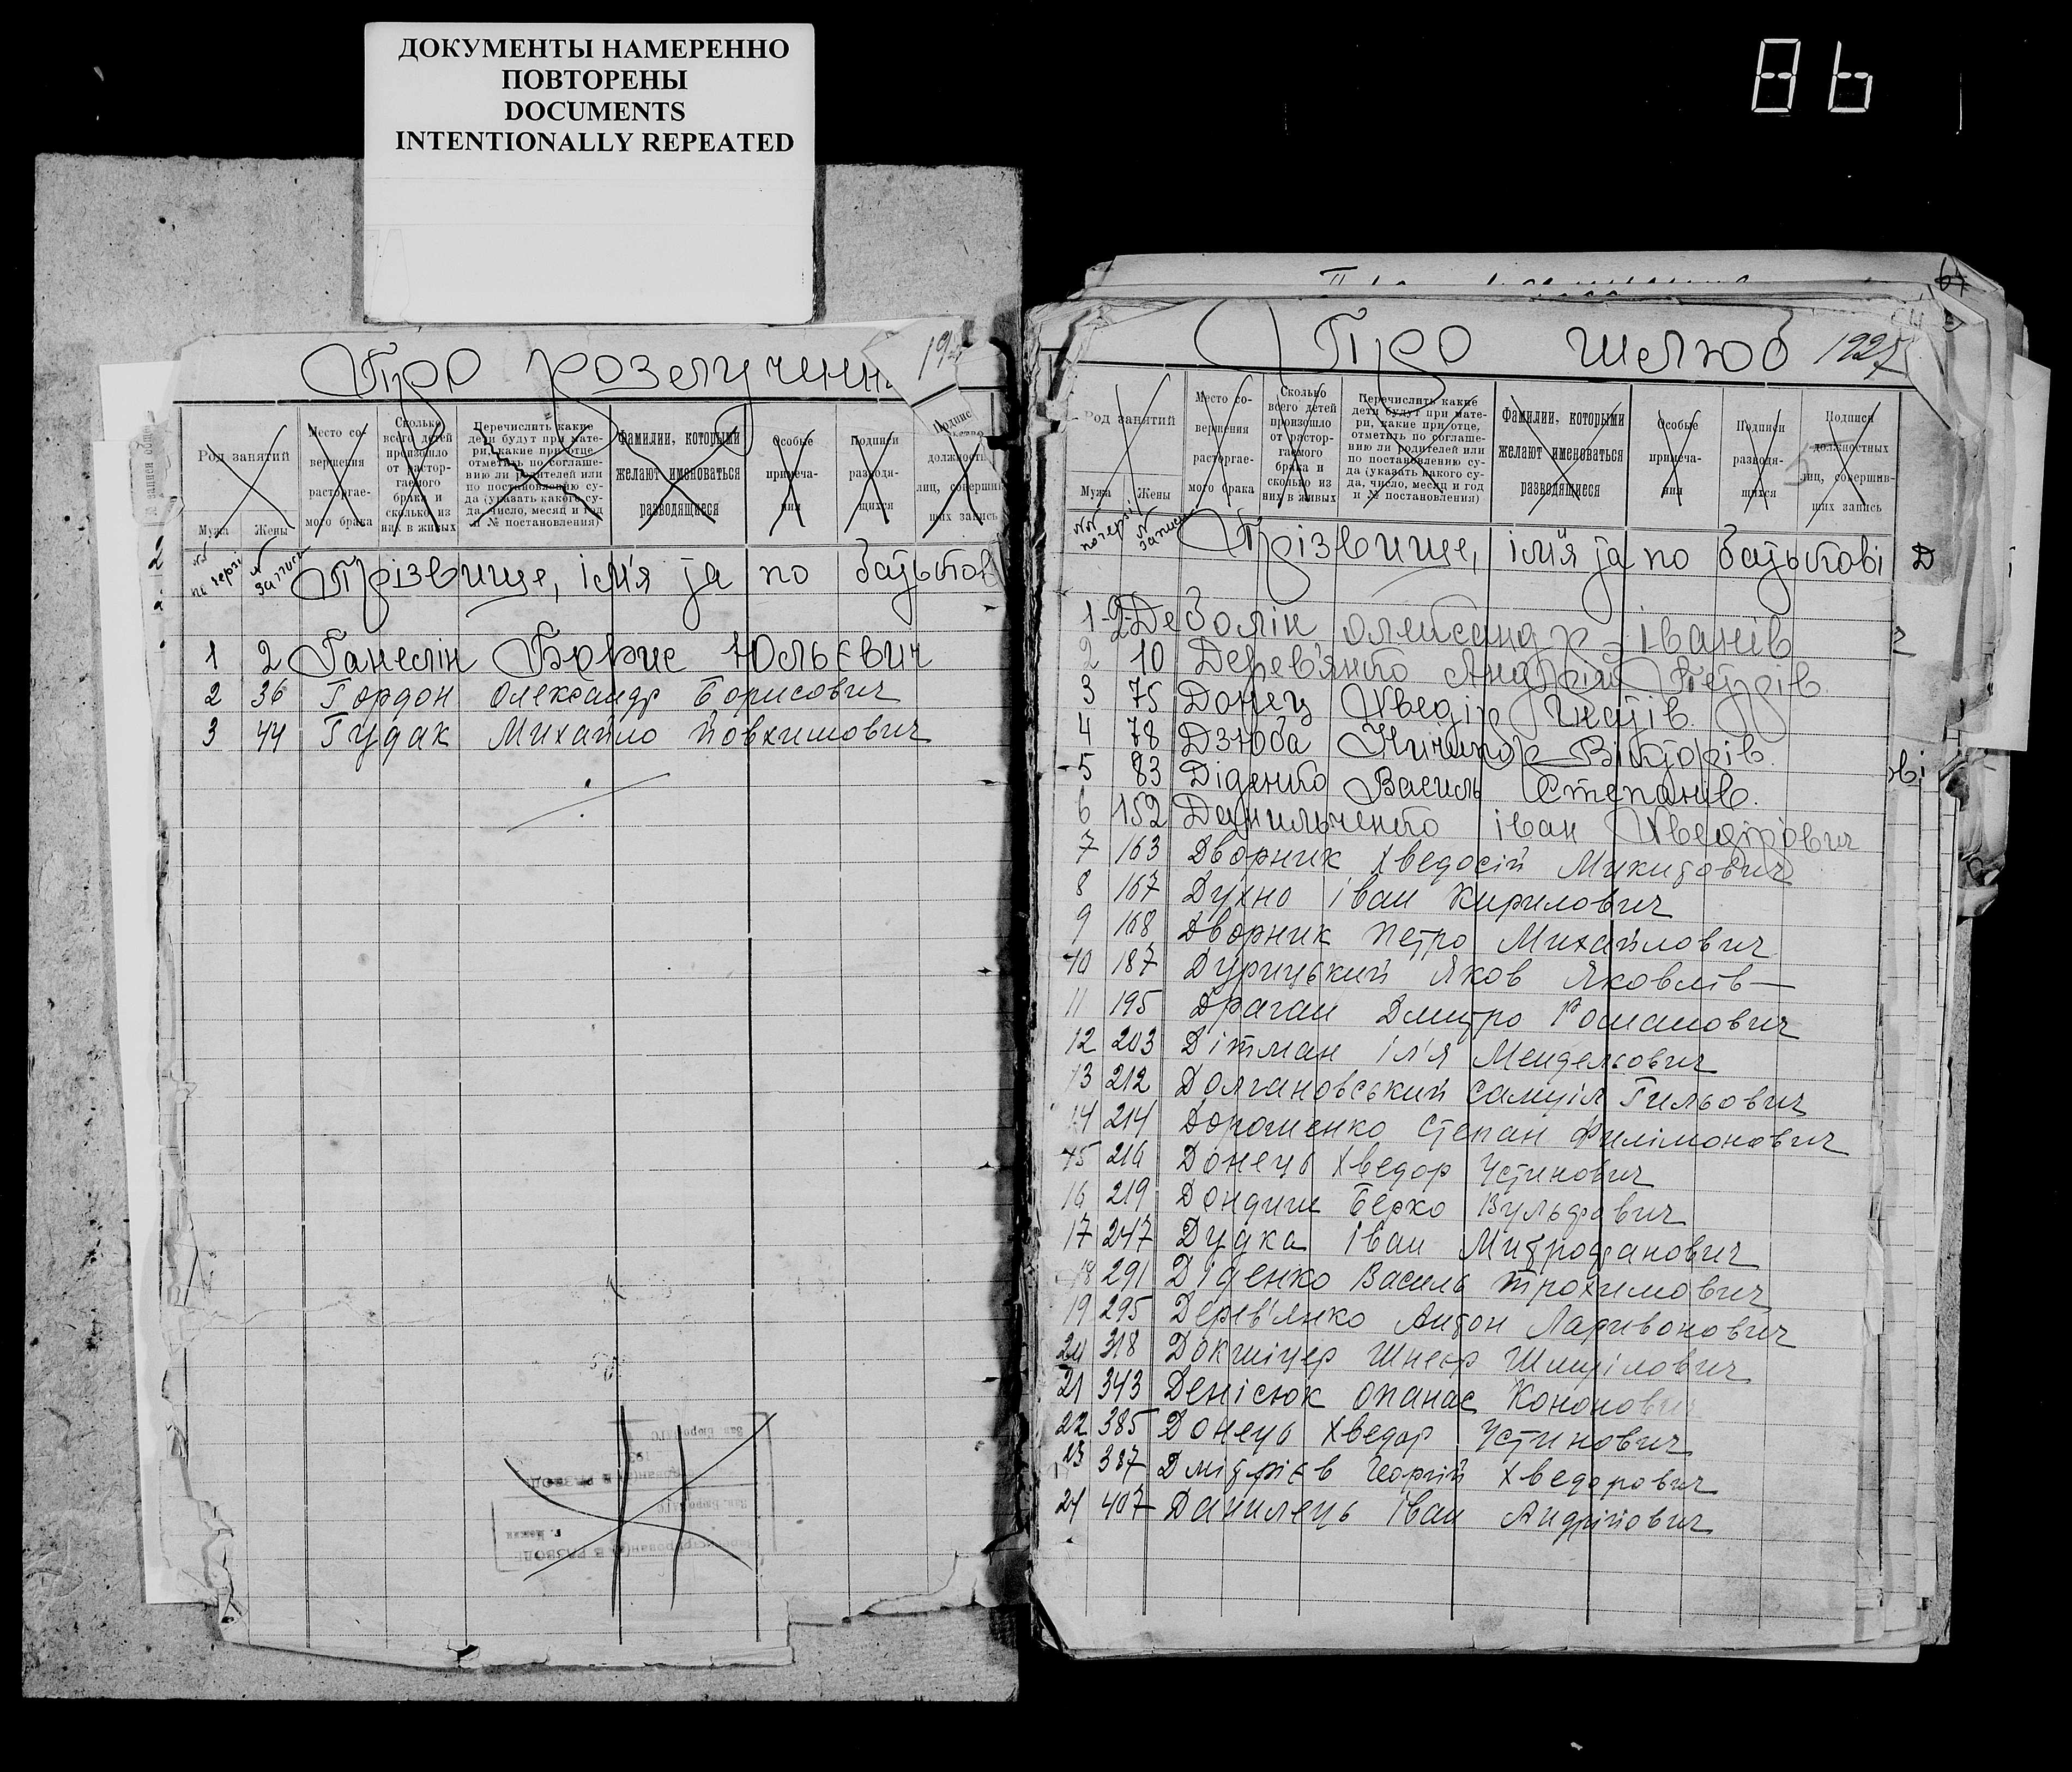 ДОКУМЕНТЫ НАМЕРЕННО
ПОВТОРЕНЫ
DOCUMENTS
INTENTIONALLY REPEATED
Про розлучення
Род занятий
Мужа Жены
Место со-
вершения
расторгае-
мого брака
Сколько
всего детей
произошло
от растор-
гаемого
брака и
сколько из
них в живых
Перечислить какие
дети будут при мате-
ри, какие при отце,
отметить по соглаше-
нию ли родителей или
по постановлению су-
да (указать какого су-
да, число, месяц и год
и № постановления)
Фамилии, которыми
желают именоваться
разводящиеся
Особые
примеча-
ния
Подписи
разводя-
щихся
должность
лиц, совершив
ших запись
№№ по черзі № запису Прізвище, ім'я та по батькові
1 2 Ганелін Борис Юльєвич
2 36 Гордон Олександр Борисович
3 44 Гудак Михайло Йовхимович
Про шлюб 1927
Род занятий
Мужа Жены
Место со-
вершения
расторгае-
мого брака
Сколько
всего детей
произошло
от растор-
гаемого
брака и
сколько из
них в живых
Перечислить какие
дети будут при мате-
ри, какие при отце,
отметить по соглаше-
нию ли родителей или
по постановлению су-
да (указать какого су-
да, число, месяц и год
и № постановления)
Фамилии, которыми
желают именоваться
разводящиеся
Особые
примеча-
ния
Подписи
разводя-
щихся
Подписи
должностных
лиц, совершив-
ших запись
№№ по черзі № запису Прізвище, ім'я та по батькові Д
1 2 Дебалін Олександр Іванів
2 10 Дерев'янко Андрій Петрів
3 75 Донец Хведір Гнатів
4 78 Дзюба Ничипор Вікторів
5 83 Діденко Василь Степанів
6 152 Данильченко Іван Хведірович
7 163 Дворник Хведосій Микитович
8 167 Духно Іван Кирилович
9 168 Дворник Петро Михайлович
10 187 Дурицький Яков Яковлів
11 195 Драган Дмитро Романович
12 203 Дітман Іл'я Мендельович
13 212 Долгановський Самуіл Гильович
14 214 Дорошенко Степан Филімонович
15 216 Донець Хведор Устинович
16 219 Дондиш Берко Вульфович
17 247 Дудка Іван Митрофанович
18 291 Діденко Василь Трохимович
19 295 Дерев'янко Антон Ларивонович
20 318 Докшіцер Шнеєр Шмуілович
21 343 Денісюк Опанас Кононович
22 385 Донець Хведор Устинович
23 387 Дмітрієв Георгій Хведорович
24 407 Данилець Іван Андрійович